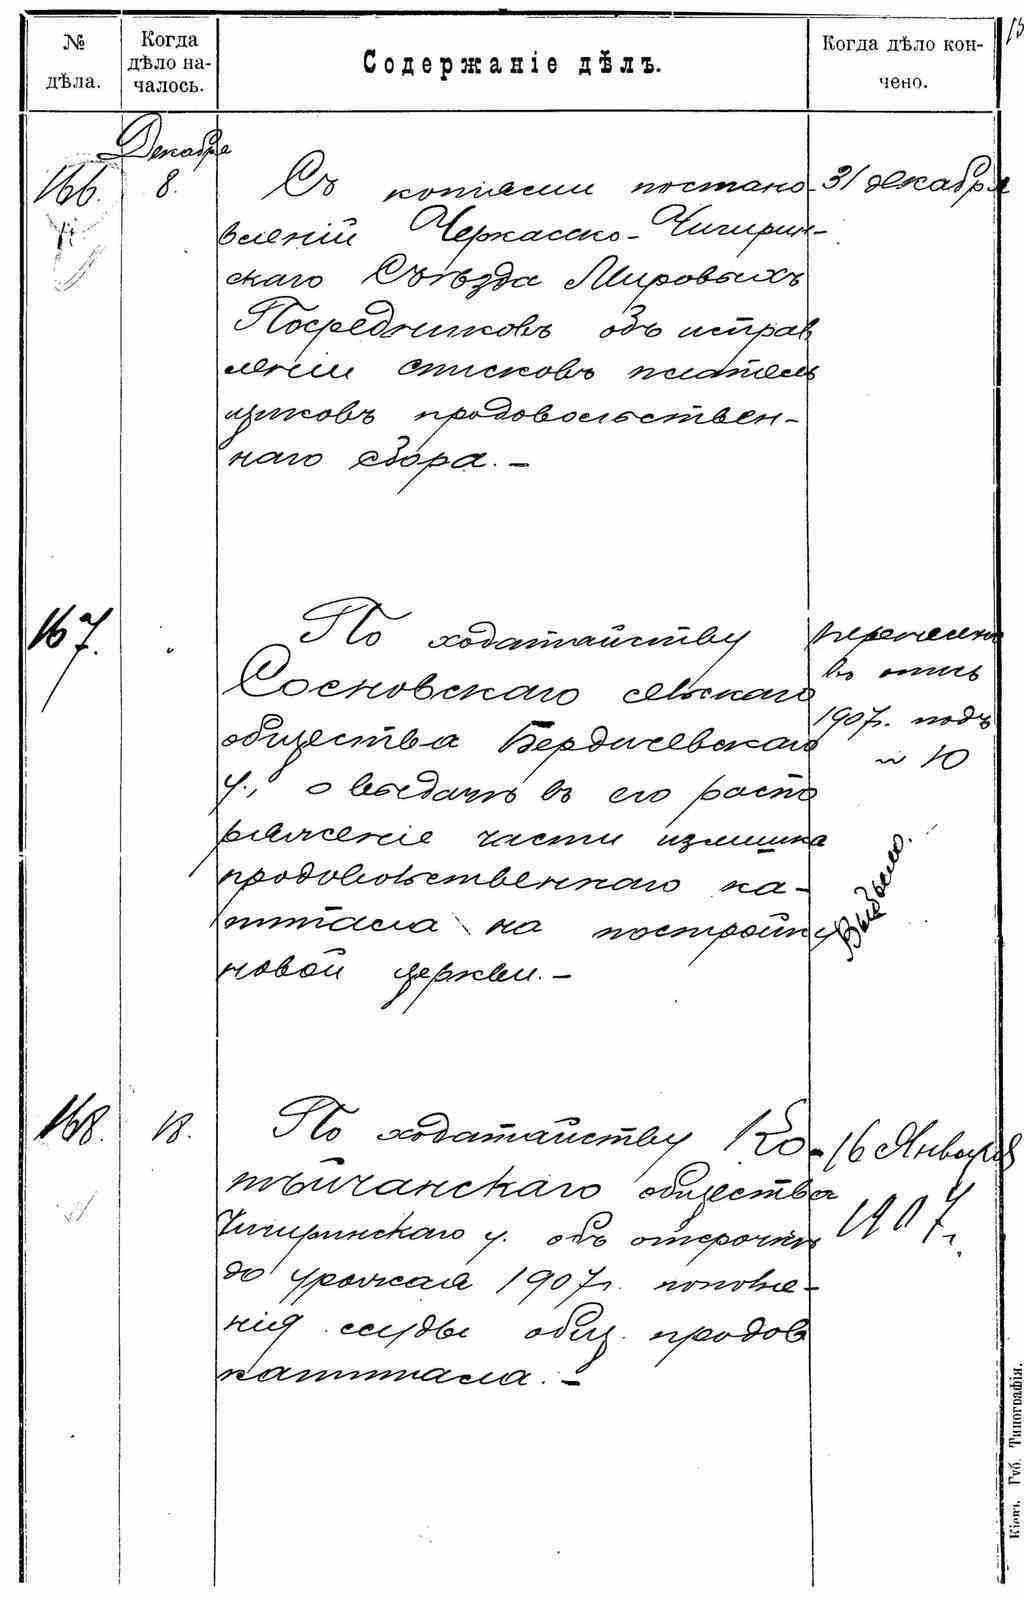 № дѣла.
Когда дѣло началось.
Содержаніе дѣлъ.
Когда дѣло кончено.
Декабря
166. 8. Съ копіями постано- 31 декабря
вленій Черкасско-Чигирин-
скаго Съѣзда Мировыхъ
Посредниковъ объ исправ
леніи списковъ плательщ
щиковъ продовольствен-
наго сбора. –
167. По ходатайству
Сосновскаго сельскаго
общества Бердичевскаго
у., о выдачѣ въ его распо
ряженіе части излишка
продовольственнаго ка-
питала на постройку
новой церкви. –
перечислено
въ опись
1907г. подъ
№ 10
Выбыло.
168. 18. По ходатайству Ко- 16 Января
тѣйчанскаго общества 1907 г.
Чигиринскаго у. объ отсрочкѣ
до урожая 1907г. пополне-
нія ссуды общ. продов
капитала. –
Кіевъ. Губ. Типографія.